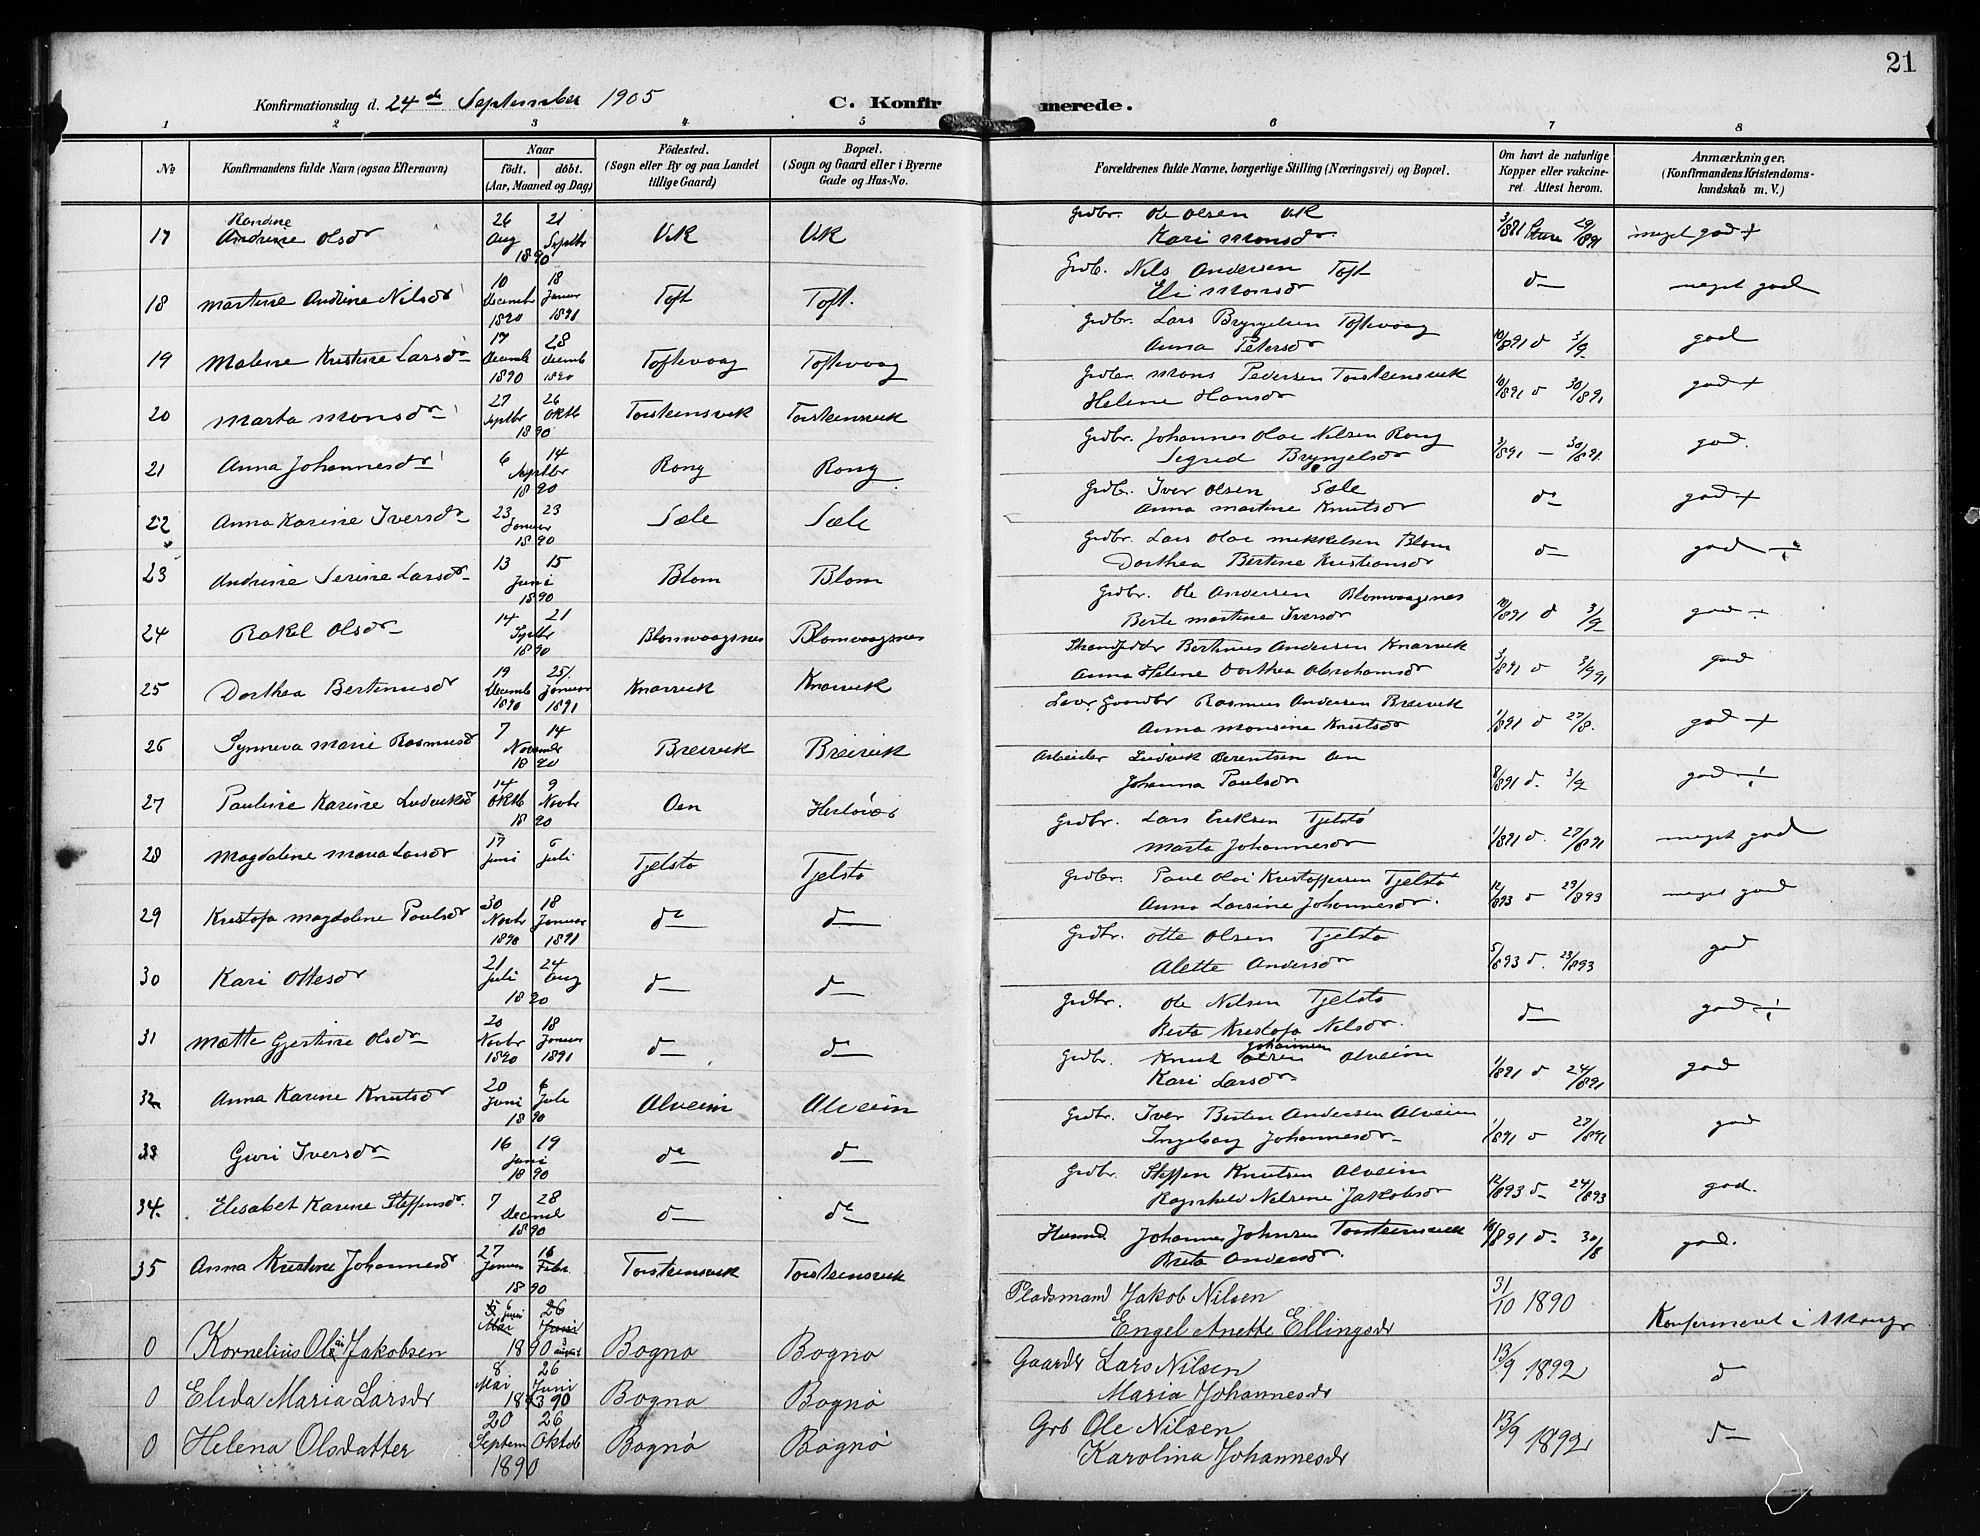 21
Konfirmationsdag d. 24de September 1905 C. Konfirmerede.
1 2 3 4 5 6 7 8
No Konfirmandens fulde Navn (ogsaa Efternavn) Naar født. døbt. (Aar, Maaned og Dag) Fødested. (Sogn eller By og paa Landet tillige Gaard) Bopæl. (Sogn og Gaard eller i Byerne Gade og Hus-No. Forældrenes fulde Navne, borgerlige Stilling (Næringsvei) og Bopæl. Om havt de naturlige Kopper eller vakcineret. Attest herom. Anmærkninger. (Konfirmandens Kristendomskundskab m. V.)
17 Randine Olsdr 26 Aug 21 Septbr 1890 Vik Vik Grdbr. Ole Olsen Vik
Kari Monsdr meget god +
18 Martine Andrine Nilsdr 10 Decembr 1890 18 Januar 1891 Toft Toft. Grdb. Nils Andersen Toft
Eli Monsdr d– meget god
19 Malene Kristine Larsdr 17 Decemb 1890 28 Decemb 1890 Toftevaag Toftevaag Grdbr. Lars Bryngelsen Toftevaag
Anna Petersdr 10/891 d 3/9 god
20 Marta Monsdr 27 Septbr 26 Oktb 1890 Torsteinsvik Torsteinsvik Grdbr. Mons Pedersen Torsteinsvik
Helene Hansdr 10/891 d 30/891 god +
21 Anna Johannesdr 6 14 Septbr 1890 Rong Rong Grdbr. Johannes Olai Nilsen Rong
Sigrid Bryngelsdr 3/891 – 30/891. god.
22 Anna Karine Iversdr 23 23 Januar 1890 Sæle Sæle Grdb. Iver Olsen Sæle
Anna Martine Knutsdr do god +
23 Andrine Serine Larsdr 13 15 Juni 1890 Blom Blom Grdbr. Lars Olai Mikkelsen Blom
Dorthea Bertine Kristiansdr d– god ÷
24 Rakel Olsdr 14 21 Septbr 1890 Blomvaagsnes Blomvaagsnes Grdbr. Ole Andersen Blomvaagsnes
Berte Martine Iversdr 10/891 d 3/9 god ÷
25 Dorthea Bertinusdr 19 Decemb 1890 25/ Januar 1891 Knarvik Knarvik Strandsidder Bertinus Andersen Knarvik
Anna Helene Dorthea Abrahamsdr 3/891 d 3/9 91 god
26 Synneva Marie Rasmusd 7 14 Novembr 1890 Breivik Breivik Rasmus Andersen Breivik
Anna Monsine Knutsdr 1/891 d 27/8. god +
27 Pauline Karine Ludviksd 14 Oktb 9 Novbr 1890 Oen Herløvær Arbeider Ludvik Berentsen Oen
Johanna Paulsdr 8/891 d. 3/9 god ÷
28 Magdalene Maria Larsdr 17 Juni 5 Juli Tjelstø Tjelstø Grdbr. Lars Eriksen Tjelstø
Marta Johannesdr 1/891 d. 27/891 meget god
29 Kristofa Magdalene Paulsdr 30 Novbr 1890 18 Januar 1891 do d– Grdbr. Paul Olai Kristoffersen Tjelstø
Anna Larsine Johannesdr. 12/893 d 29/893 meget god
30 Kari Ottesdr 21 Juli 24 Aug 1890 d– d– Grdbr. Otte Olsen Tjelstø
Alette Andersdr 5/893 d. 23/893 god
31 Mætte Gjertine Olsdr 20 Novbr 1890 18 Januar 1891 d– do Grdbr. Ole Nilsen Tjelstø
Berta Kristofa Nilsdr. d– god ÷
32 Anna Karine Knutsdr 20 Juni 6 Juli 1890 Alveim Alveim Grdbr. Knut Johannesen Alveim
Kari Larsdr 1/891 d 24/891 god
33 Guri Iversdr 16 19 Juni 1890 do d– Grdbr. Iver Berten Andersen Alveim
Ingeborg Johannesdr 1/891 d 27/891 god
34. Elisabet Karine Steffensdr. 7 28 Decemb 1890 d– do Grdbr. Steffen Knutsen Alveim
Ragnhild Nilsine Jakobsdr 12/893 d– 24/893 god.
35 Anna Kristine Johannesd 27 Januar 16 Febr. 1890 Torsteinsvik Torsteinsvik Husmd. Johannes Johnsen Torsteinsvik
Brita Andersdr. 10/891 d– 30/8 god.
0 Kornelius Olai Jakobsen 6 Juni 3 august 1890 Bognø Bognø Pladsmand Jakob Nilsen
Engel Anette Ellingsdr 31/10 1890 Konfirmeret i Manger
0 Elida Maria Larsdr 8 Mai 26 Juni 1890 Bognø Bognø Gaardbr Lars Nilsen
Maria Johannesdr 13/9 1892 d
0 Helena Olsdatter 20 Septem 26 Oktob 1890 Bognø Bognø Grb Ole Nilsen
Karolina Johannesdr 13/9 1892 d–